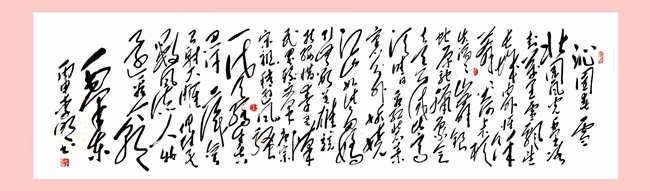 沁园春 雪
北国风光千里冰
封万里雪飘望
长城内外惟余
莽莽大河上下顿
失滔滔山舞银
蛇原驰蜡象欲与
天公试比高
须晴日看红装素
裹分外妖娆
江山如此多娇
引无数英雄竞
折腰惜秦皇汉
武略输文采唐宗
宋祖稍逊风骚
一代天骄成吉
思汗只识弯
弓射大雕俱往矣
数风流人物
还看今朝
毛泽东